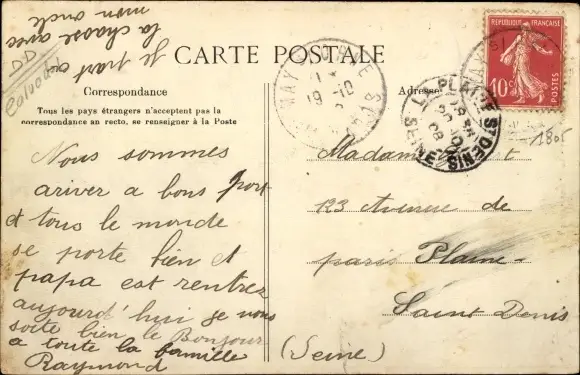 je part a
la chasse avec
mon oncle
CARTE POSTALE
Correspondance
Tous les pays étrangers n'acceptent pas la
correspondance au recto, se renseigner à la Poste
Nous sommes
ariver a bons port
et tous le monde
se porte bien et
papa est rentrez
aujourd'hui je vous
soite bien le Bonjour
a toute la famille
Raymond
Adresse
REPUBLIQUE FRANÇAISE
10c
POSTES
LA PLAINE ST DENIS
SEINE
19 -10
1805
Madame
123 Avenue de
paris Plaine
Saint Denis
(Seine)